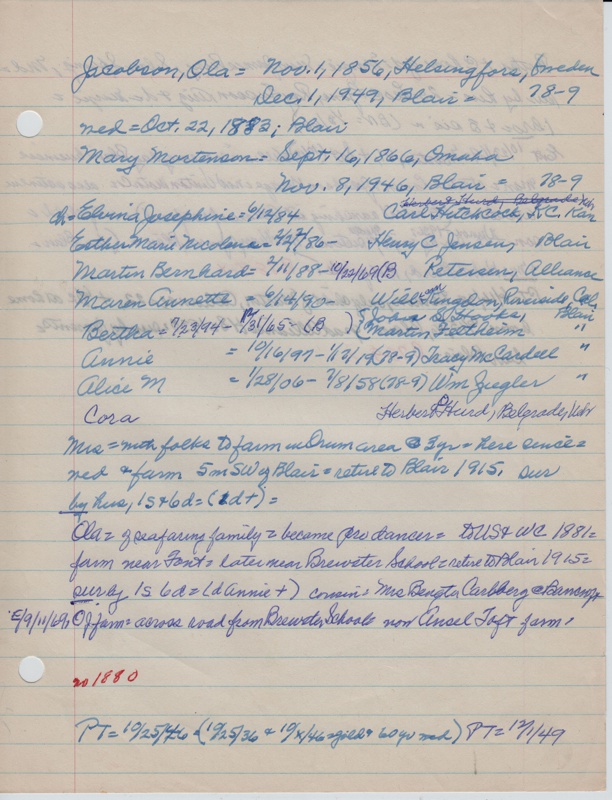 Jacobson, Ola = Nov. 1, 1856, Helsingfors, Sweden
Dec. 1, 1949, Blair = 78-9
med = Oct. 22, 1883; Blair
Mary Mortenson = Sept. 16, 1866, Omaha
Nov. 8, 1946, Blair = 78-9
Herbert Hurd, Belgrade Neb.
ch = Elvina Josephine = 6/12/84 Carl Hitchcock, K.C. Kan
Esther Marie Nicolena = 2/27/86 - Henry C. Jensen, Blair
Martin Bernhard = 2/11/88 - 10/22/69 (B Petersen, Alliance
Maren Annette = 6/14/90 - Will Langdon, Riverside Cal.
{John S. Hooks, Blair
Bertha = 7/23/94 - 12/31/65 - (B) {Martin Feltheim "
Annie = 10/16/97 - 1/2/19 (78-9) Tracy McCardell "
Alice M = 1/28/06 - 7/8/58 (78-9) Wm Ziegler "
Cora Herbert P Hurd, Belgrade, Nebr
Mrs = with folks to farm in Orum area @ 3 yr = here since =
med & farm 5 m SW of Blair = retire to Blair 1915, sur
by hus, 1s & 6d = (1d +) =
Ola = of seafaring family = became dancer = to US & WC 1881 =
farm near Font = later near Brewster School = retire to Blair 1915 =
sur by 1s 6d = (d Annie +) cousin = Mrs Bengta Carlberg @
E/9/11/69, O J farm = across road from Brewster School = now Ansel Toft farm.
no 1880
PT = 10/25/46 & (10/25/36 & 10/x/46 = gold & 60 yr med) PT = 12/1/49